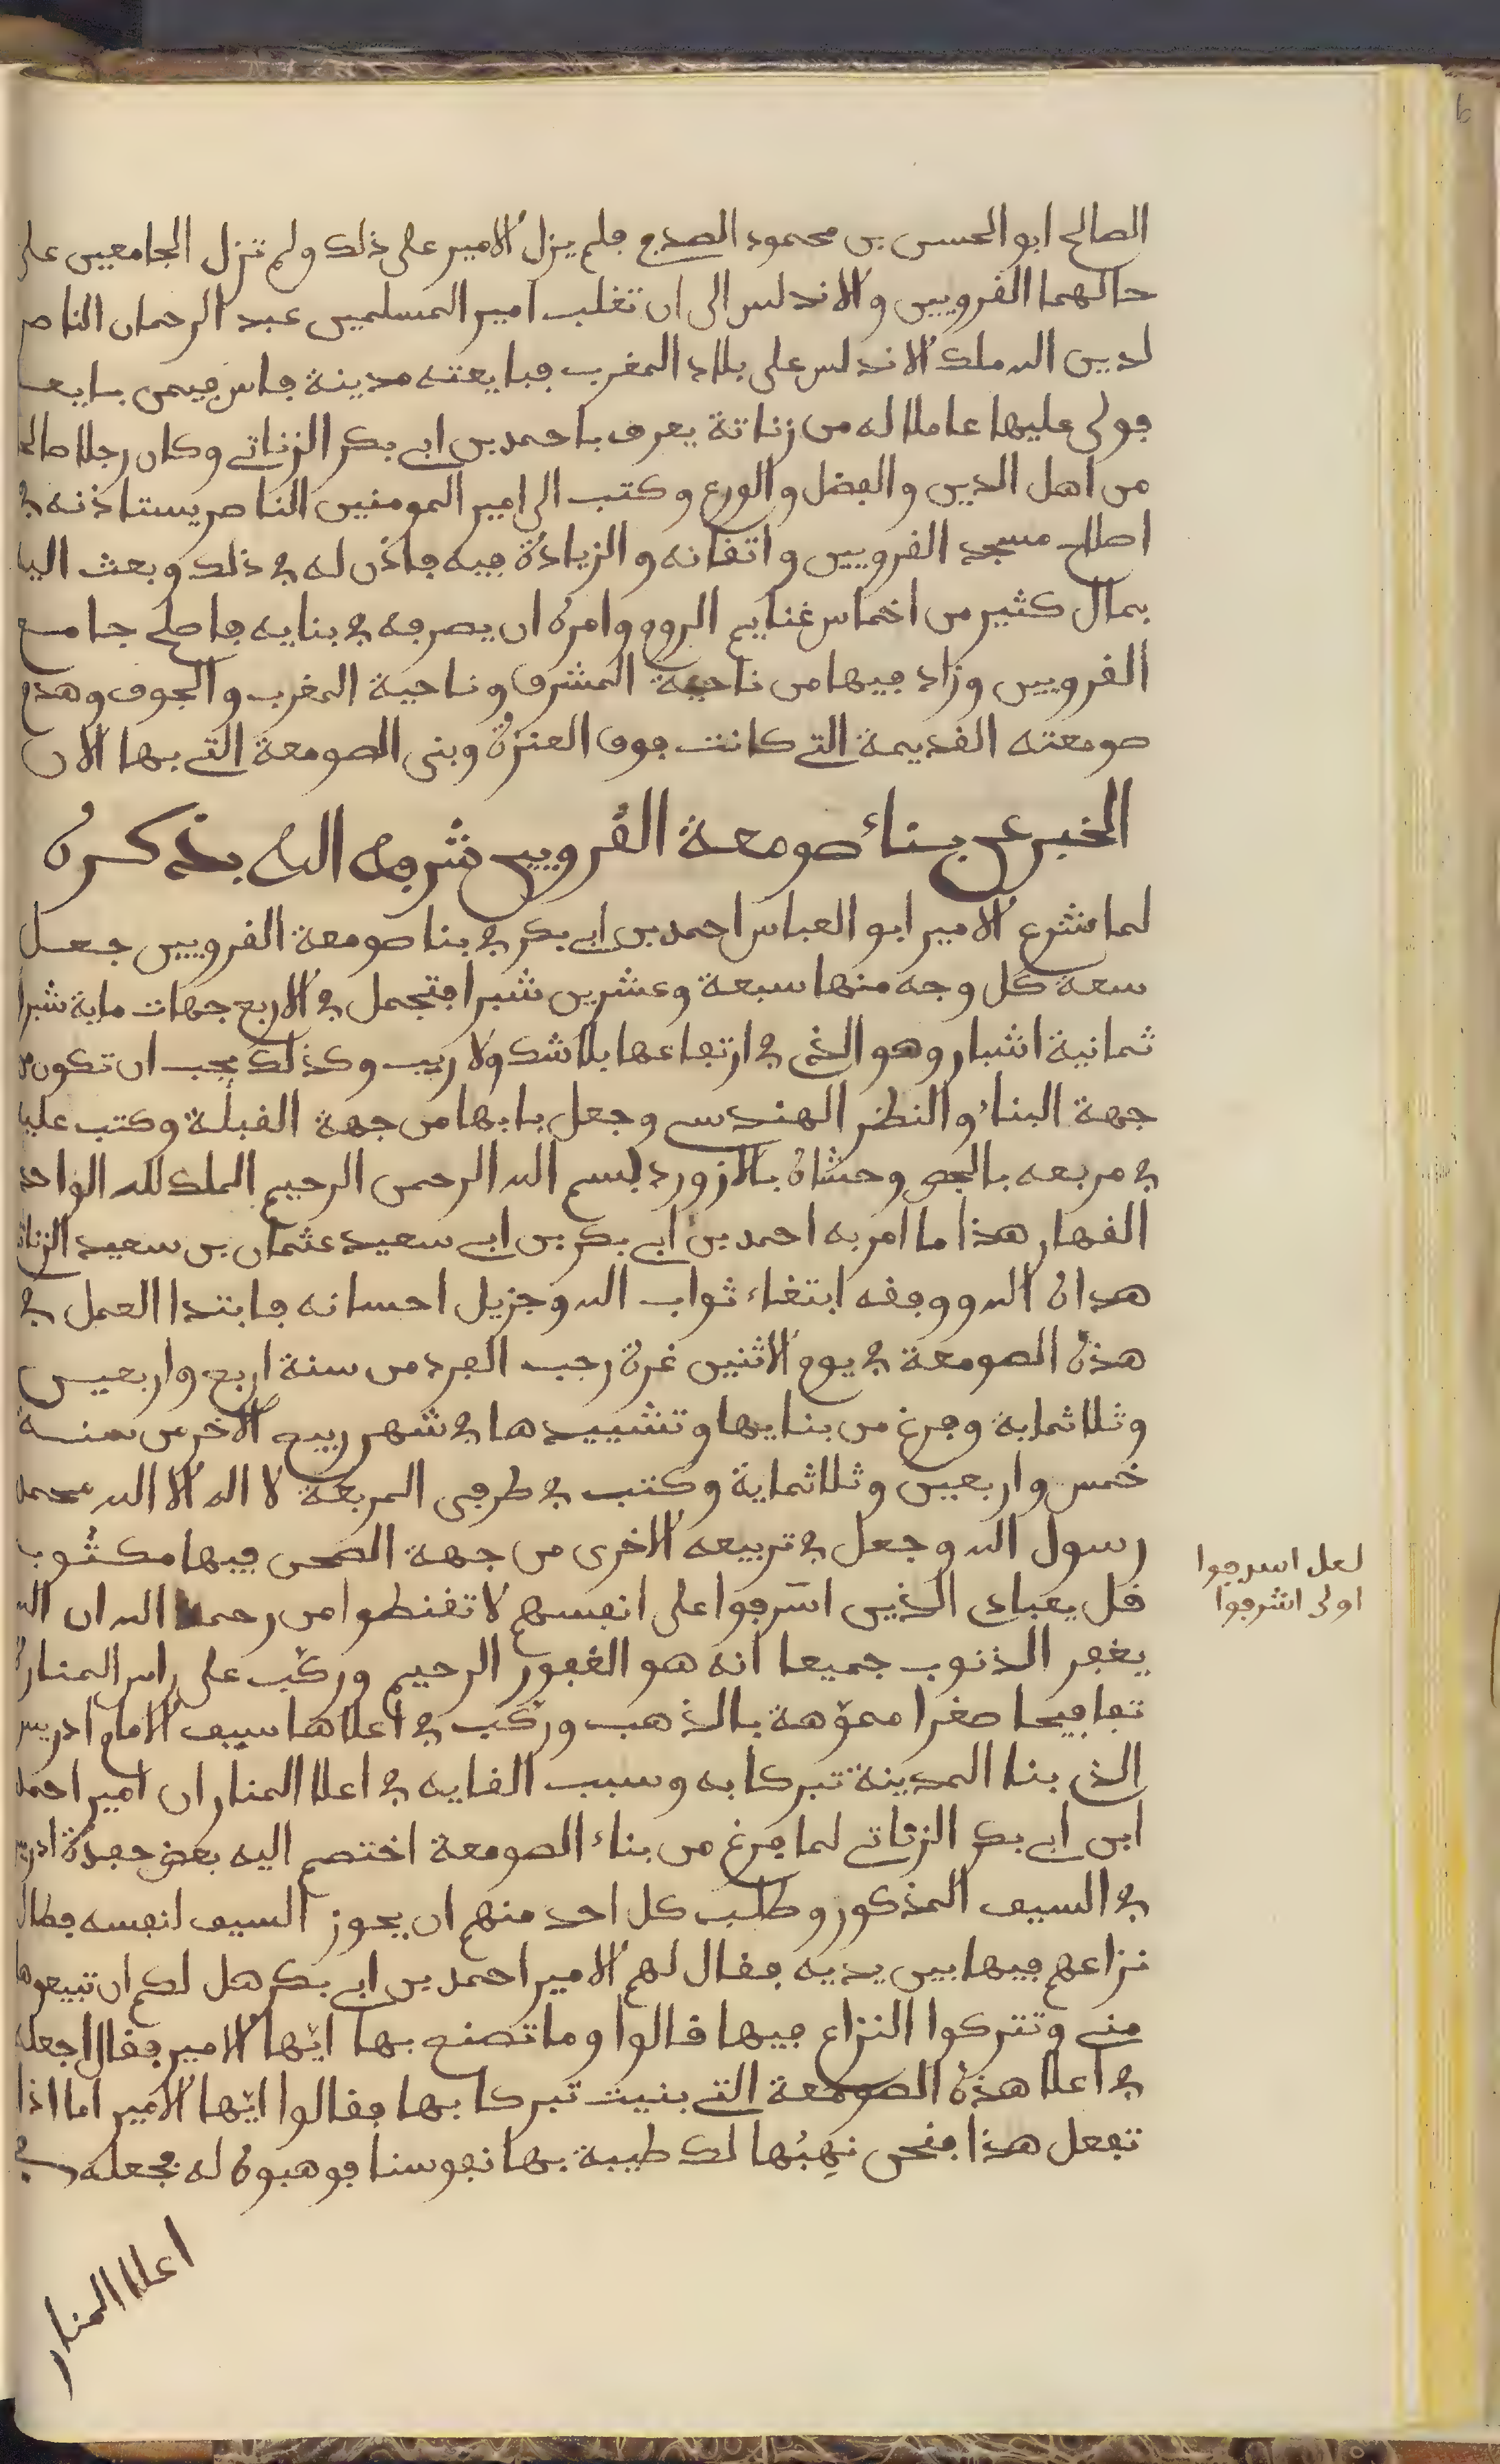 الصالح ابو الحسن بن محمود الصدفي فلم يزل الامير على ذلك ولم تزل الجامعين على
حالهما القرويين والاندلس الى ان تغلب امير المسلمين عبد الرحمان الناصر
لدين الله ملك الاندلس على بلاد المغرب فبايعته مدينة فاس فيمن بايعه
فولى عليها عاملا له من زناتة يعرف باحمد بن ابي بكر الزناتي وكان رجلا صالحا
من اهل الدين والفضل والورع وكتب الى امير المومنين الناصر يستاذنه في
اصلاح مسجد القرويين واتقانه والزيادة فيه فاذن له في ذلك وبعث اليه
بمال كثير من اخماس غنايم الروم وامره ان يصرفه في بنايه فاصلح جامع
القرويين وزاد فيها من ناحية المشرق وناحية المغرب والجوف وهدم
صومعته القديمة التي كانت فوق العنزة وبنى الصومعة التي بها الان
الخبر عن بناء صومعة القرويين شرفه الله بذكره
لما شرع الامير ابو العباس احمد بن ابي بكر في بنا صومعة القرويين جعل
سعة كل وجه منها سبعة وعشرين شبرا فتجمل في الاربع جهات ماية شبرا
ثمانية اشبار وهو الذي في ارتفاعها بلا شك ولا ريب وكذلك يجب ان تكون من
جهة البناء والنظر الهندسي وجعل بابها من جهة القبلة وكتب عليه
في مربعه بالجص وحشاه بالازورد بسم الله الرحمن الرحيم الملك لله الواحد
القهار هذا ما امر به احمد بن ابي بكر بن ابي سعيد عثمان بن سعيد الزناتي
هداه الله ووفقه ابتغاء ثواب الله وجزيل احسانه فابتدا العمل في
هذه الصومعة في يوم الاثنين غرة رجب الفرد من سنة اربع واربعين
وثلاثماية وفرغ من بنايها وتشييدها في شهر ربيع الاخر من سنة
خمس واربعين وثلاثماية وكتب في طرفي المربعة لا اله الا الله محمد
رسول الله وجعل في تربيعه الاخرى من جهة الصحن فيها مكثوب
قل يعبادي الذين اسرفوا على انفسهم لا تقنطوا من رحمة الله ان الله
لعل اسرفوا
اولى اشرفوا
يغفر الذنوب جميعا انه هو الغفور الرحيم وركب على راس المنارة
تفافيحا صغرا مموّهة بالذهب وركب في اعلاها سيف الامام ادريس
الذي بنا المدينة تبركا به وسبب القايه في اعلا المنار ان امير احمد
ابن ابي بكر الزناتي لما فرغ من بناء الصومعة اختصم اليه بعض حفدة ادريس
في السيف المذكور وطلب كل احد منهم ان يحوز السيف لنفسه فطال
نزاعهم فيها بين يديه فقال لهم الامير احمد بن ابي بكر هل لكم ان تبيعوها
مني وتتركوا النزاع فيها قالوا وما تصنع بها ايّها الامير فقال اجعله
في اعلا هذه الصومعة التي بنيت تبركا بها فقالوا ايّها الامير اما اذا
تفعل هذا فنحن نهبُها لك طيبة بها نفوسنا فوهبوه له فجعله في
اعلا المنار